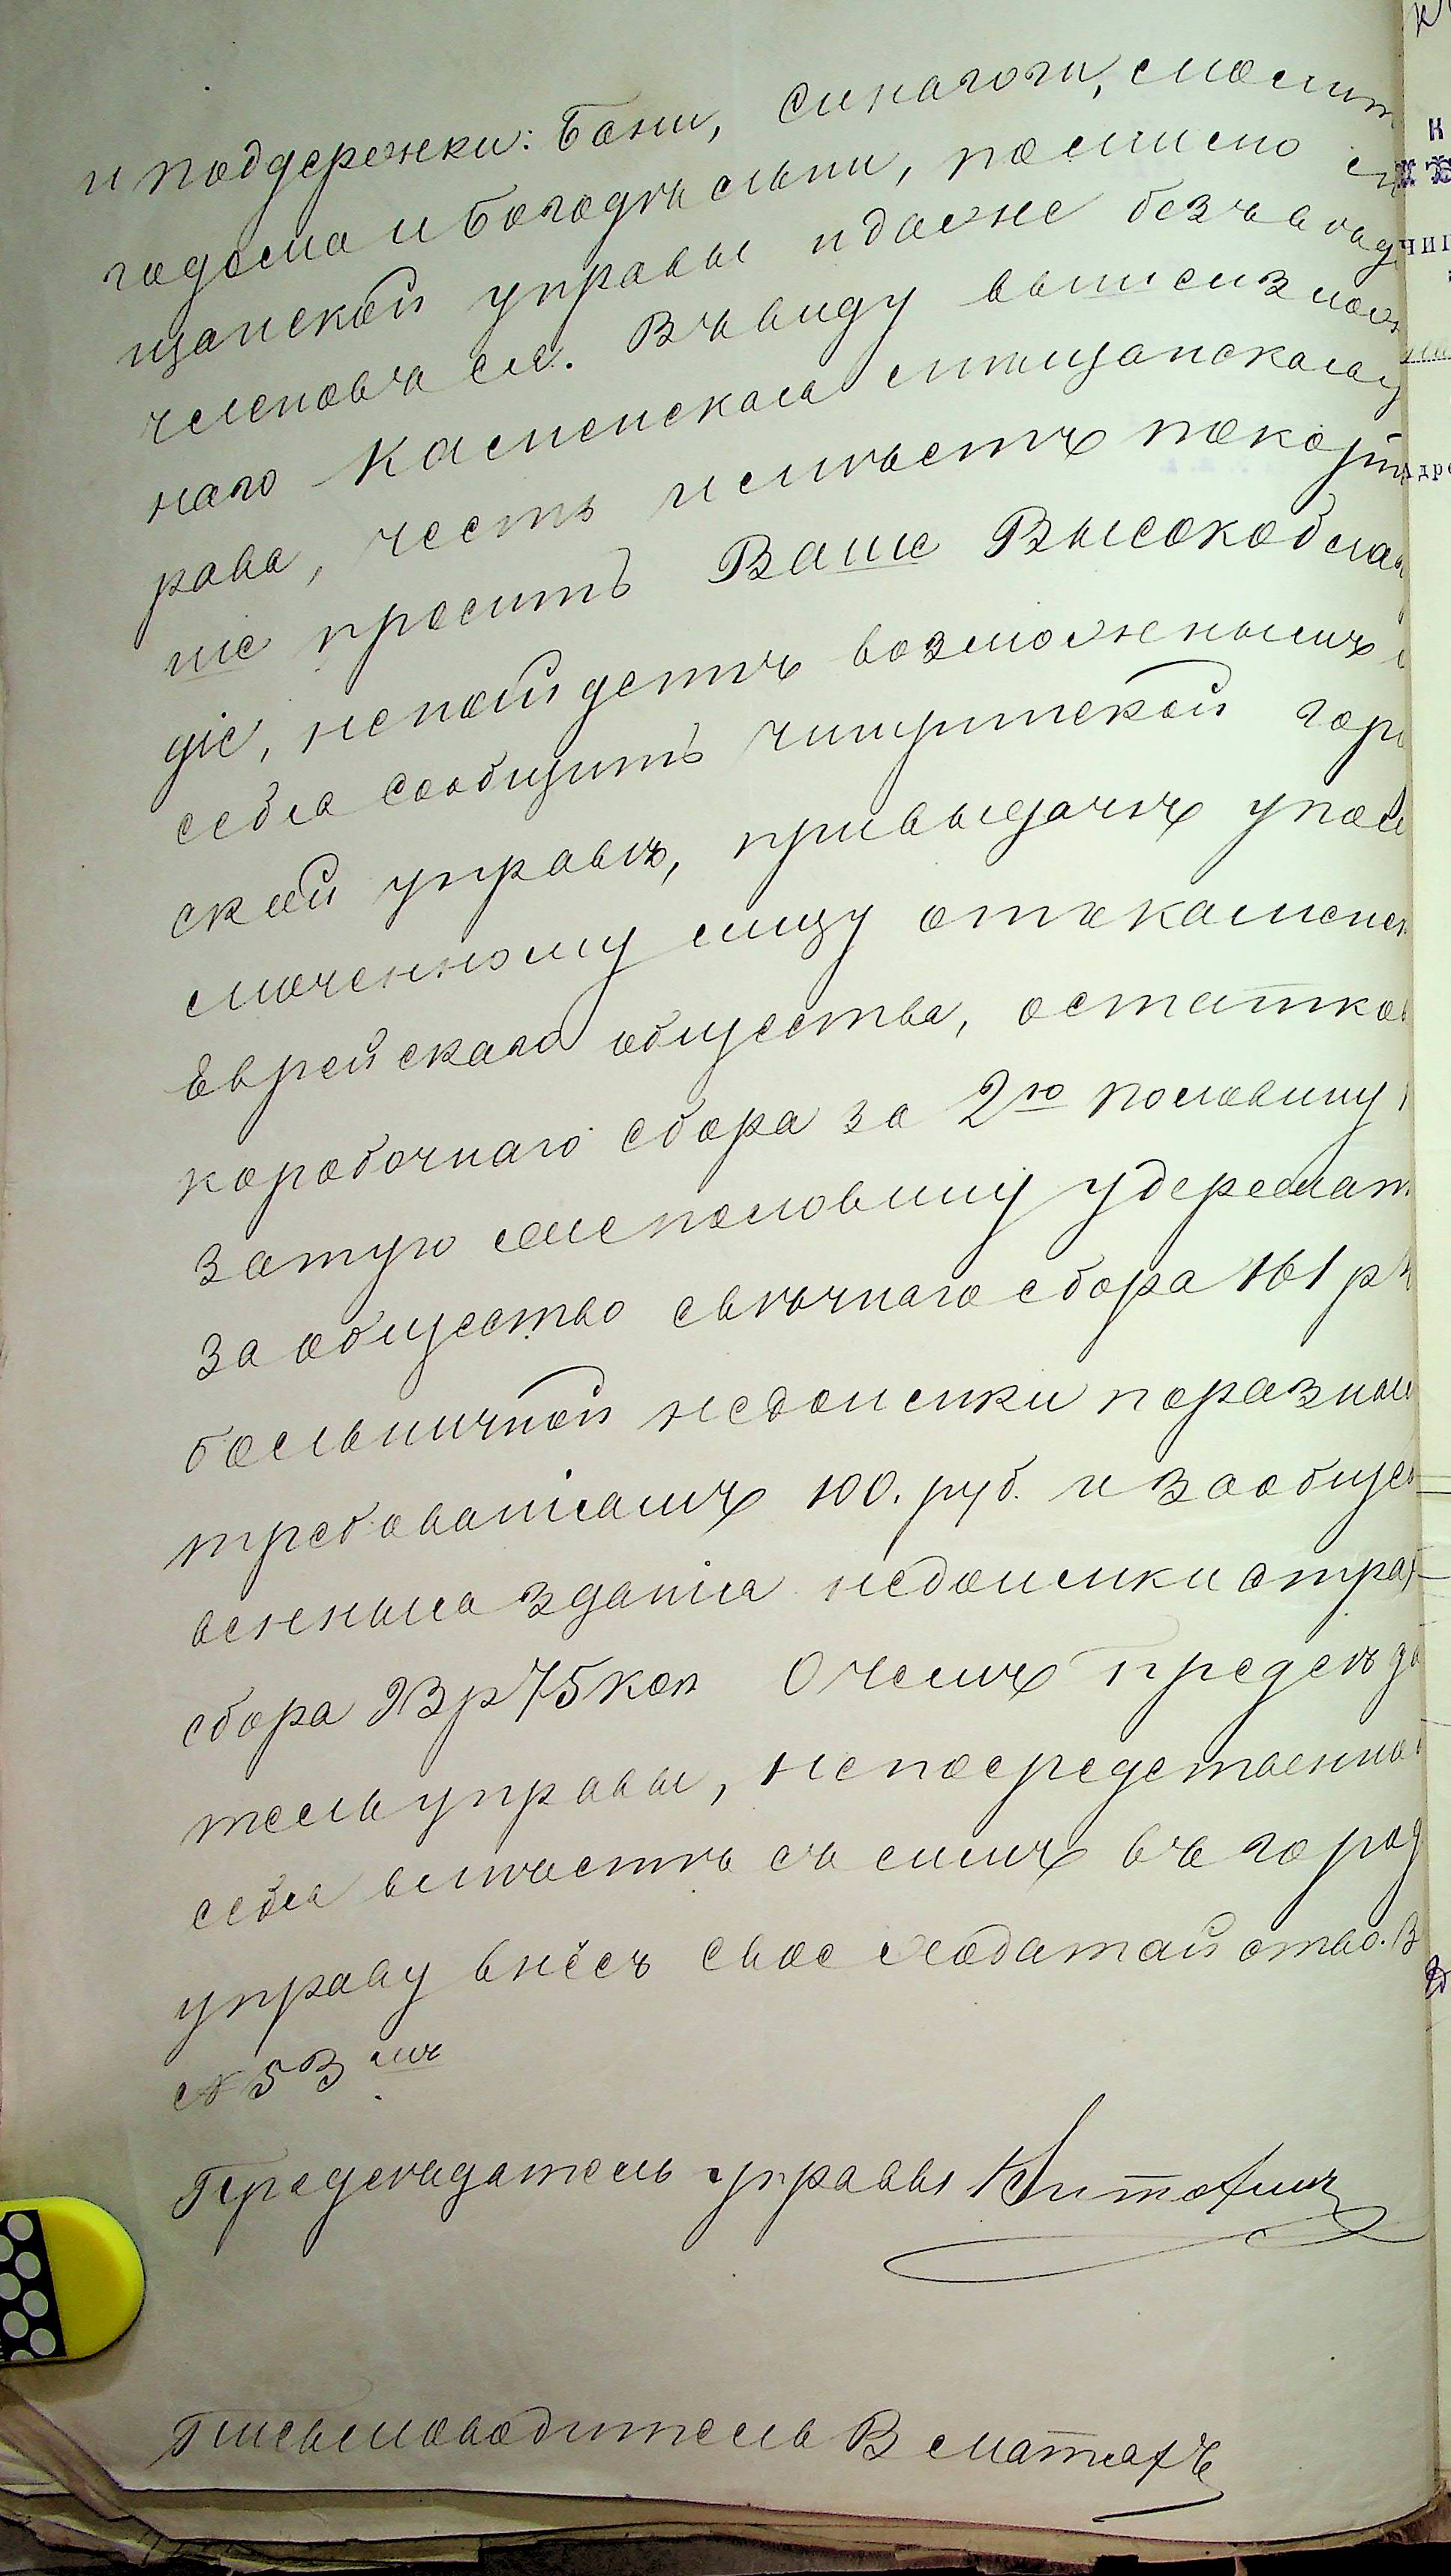 и поддержки: Бани, синагоги, молит
годома и богодѣльни, помимо мѣ
щанской управы и даже безъ вѣд
членовъ ея. Въ виду вышеизлож
наго Каменская мѣщанская у
рава, честь имѣетъ покорн
ше просить Ваше Высокоблаг
діе, ненайдетъ возможнымъ
себя сообщить чигиринской гор
ской управѣ, при выдачѣ упол
моченному лицу отъ каменск
Еврейскаго общества, остатков
коробочнаго сбора за 2ю половину
за тую же половину удержат
за общество свѣчнаго сбора 161 р
больничной недоимки по разным
требованіямъ 100. руб. и за общес
венныя зданія недоимки страх
сбора 23 р 75 коп О чемъ предсѣда
тель управы, непосредственно
себя вмѣстѣ съ симъ въ город
управу внёсъ свое ходатайство. В
№ 53 мъ
Предсѣдатель управы
Письмоводитель В
К
чиг
дре